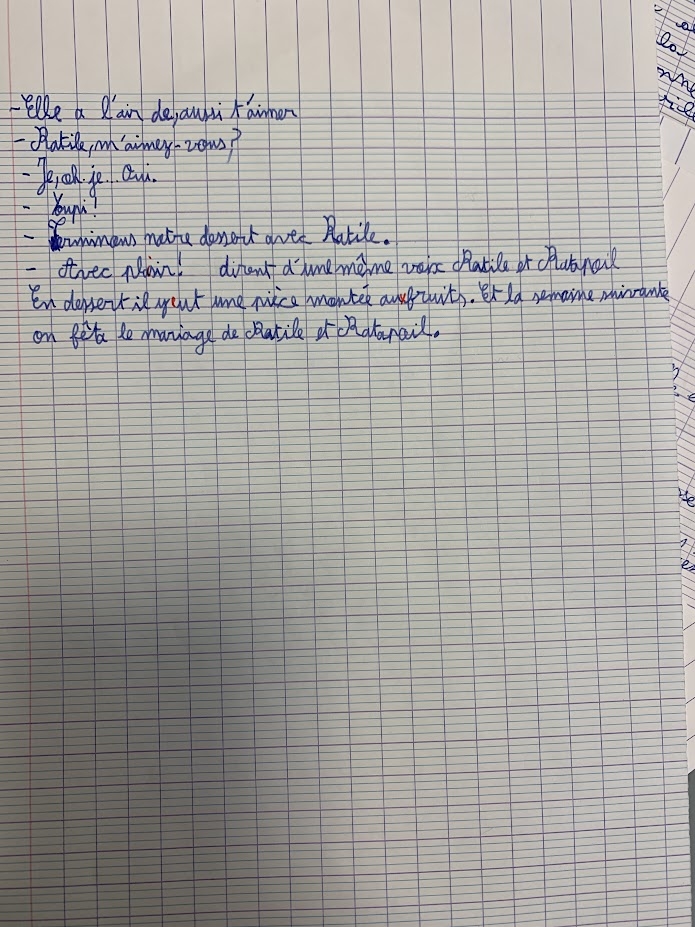 - Elle a l'air de, aussi t'aimer
- Ratile, m'aimez-vous ?
- Je, oh je... Oui.
- Youpi !
- Terminons notre dessert avec Ratile.
- Avec plaisir ! dirent d'une même voix Ratile et Ratapoil
En dessert il y eut une pièce montée aux fruits. Et la semaine suivante
on fêta le mariage de Ratile et Ratapoil.
la